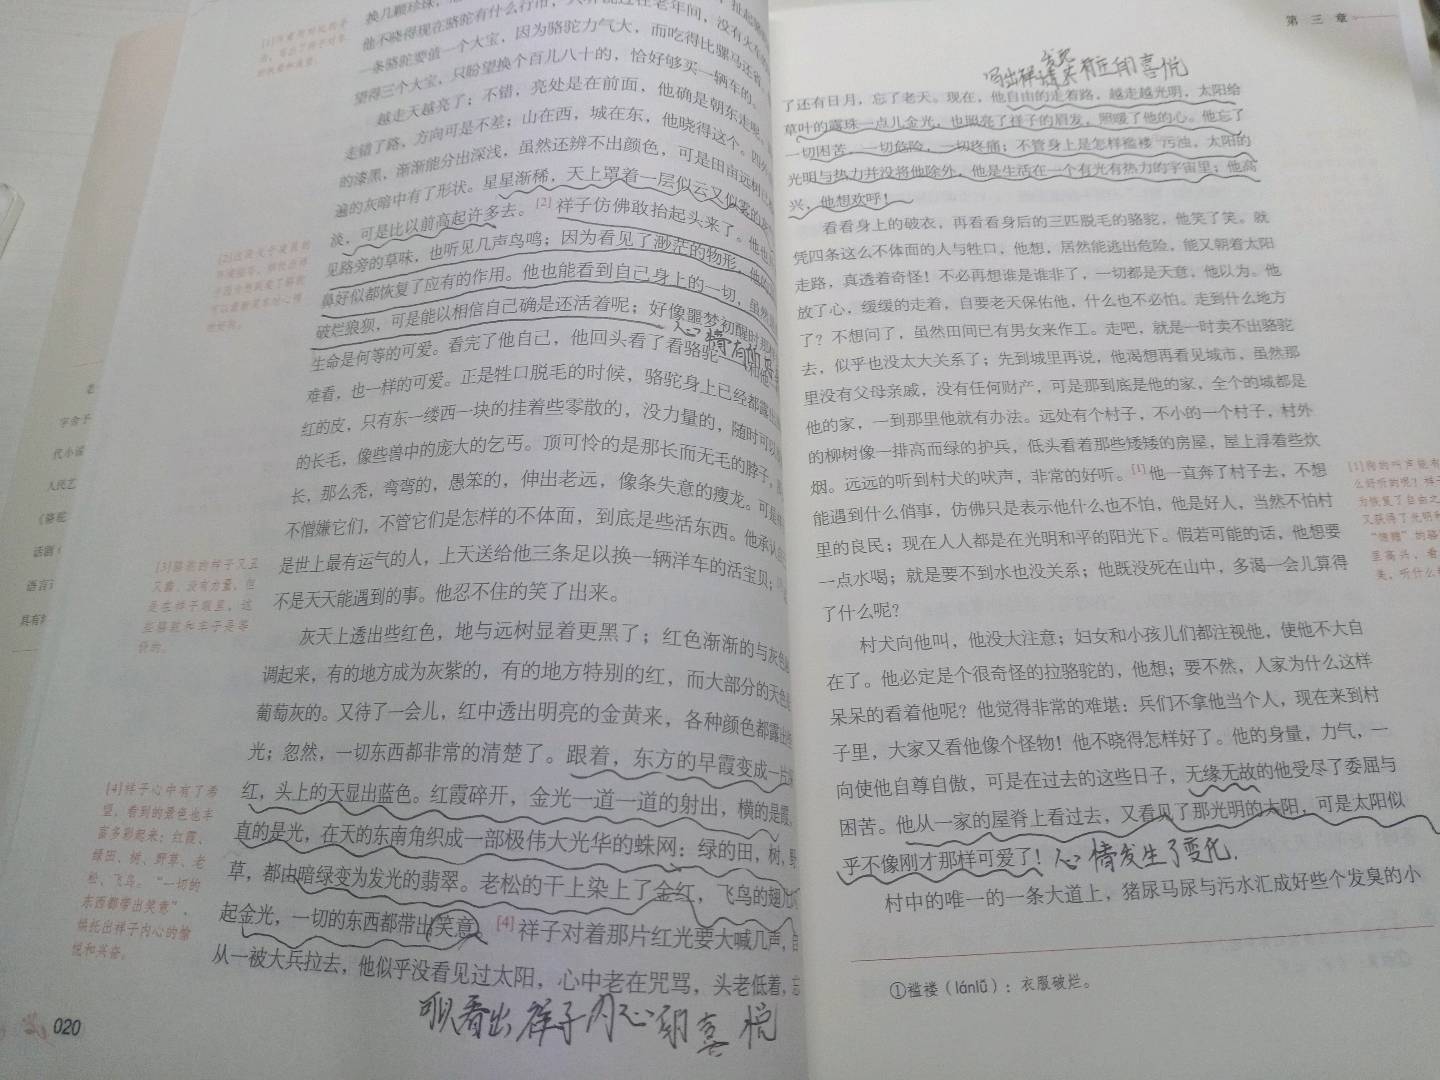 他不晓得现在骆驼有什么行市，只听说过在老年间，没有火车
一条骆驼要值一个大宝，因为骆驼力气大，而吃得比骡马还省。
望得三个大宝，只盼望换个百儿八十的，恰好够买一辆车的。
越走天越亮了；不错，亮处是在前面，他确是朝东走呢。
走错了路，方向可是不差；山在西，城在东，他晓得这个。四外
的漆黑，渐渐能分出深浅，虽然还辨不出颜色，可是田亩远树已
遍的灰暗中有了形状。星星渐稀，天上罩着一层似云又似雾的灰
淡，可是比以前高起许多去。[2]祥子仿佛敢抬起头来了。他也
见路旁的草味，也听见几声鸟鸣；因为看见了渺茫的物形，他的
鼻好似都恢复了应有的作用。他也能看到自己身上的一切，虽然
破烂狼狈，可是能以相信自己确是还活着呢；好像噩梦初醒时那样
生命是何等的可爱。看完了他自己，他回头看了看骆驼——和他
难看，也一样的可爱。正是牲口脱毛的时候，骆驼身上已经都露出
红的皮，只有东一缕西一块的挂着些零散的，没力量的，随时可以
的长毛，像些兽中的庞大的乞丐。顶可怜的是那长而无毛的脖子，
长，那么秃，弯弯的，愚笨的，伸出老远，像条失意的瘦龙。可是
不憎嫌它们，不管它们是怎样的不体面，到底是些活东西。他承认
是世上最有运气的人，上天送给他三条足以换一辆洋车的活宝贝；
不是天天能遇到的事。他忍不住的笑了出来。
灰天上透出些红色，地与远树显着更黑了；红色渐渐的与灰色
调起来，有的地方成为灰紫的，有的地方特别的红，而大部分的天色
葡萄灰的。又待了一会儿，红中透出明亮的金黄来，各种颜色都露出
光；忽然，一切东西都非常的清楚了。跟着，东方的早霞变成一片
红，头上的天显出蓝色。红霞碎开，金光一道一道的射出，横的是霞，
直的是光，在天的东南角织成一部极伟大光华的蛛网：绿的田，树，野
草，都由暗绿变为发光的翡翠。老松的干上染上了金红，飞鸟的翅儿
起金光，一切的东西都带出笑意。[4]祥子对着那片红光要大喊几声，自
从一被大兵拉去，他似乎没看见过太阳，心中老在咒骂，头老低着，忘
[3]骆驼的样子又丑
又蠢，没有力量，但
是在祥子眼里，这
些骆驼和车子是等
价的。
[4]祥子心中有了希
望，看到的景色也丰
富多彩起来：红霞、
绿田、树、野草、老
松、飞鸟。“一切的
东西都带出笑意”，
烘托出祥子内心的愉
悦和兴奋。
可以看出祥子内心的喜悦
020
第三章
了还有日月，忘了老天。现在，他自由的走着路，越走越光明，太阳给
草叶的露珠一点儿金光，也照亮了祥子的眉发，照暖了他的心。他忘了
一切困苦，一切危险，一切疼痛；不管身上是怎样褴褛①污浊，太阳的
光明与热力并没将他除外，他是生活在一个有光有热力的宇宙里；他高
兴，他想欢呼！
看看身上的破衣，再看看身后的三匹脱毛的骆驼，他笑了笑。就
凭四条这么不体面的人与牲口，他想，居然能逃出危险，能又朝着太阳
走路，真透着奇怪！不必再想谁是谁非了，一切都是天意，他以为。他
放了心，缓缓的走着，自要老天保佑他，什么也不必怕。走到什么地方
了？不想问了，虽然田间已有男女来作工。走吧，就是一时卖不出骆驼
去，似乎也没太大关系了；先到城里再说，他渴想再看见城市，虽然那
里没有父母亲戚，没有任何财产，可是那到底是他的家，全个的城都是
他的家，一到那里他就有办法。远处有个村子，不小的一个村子，村外
的柳树像一排高而绿的护兵，低头看着那些矮矮的房屋，屋上浮着些炊
烟。远远的听到村犬的吠声，非常的好听。[1]他一直奔了村子去，不想
能遇到什么俏事，仿佛只是表示他什么也不怕，他是好人，当然不怕村
里的良民；现在人人都是在光明和平的阳光下。假若可能的话，他想要
一点水喝；就是要不到水也没关系；他既没死在山中，多渴一会儿算得
了什么呢？
村犬向他叫，他没大注意；妇女和小孩儿们都注视他，使他不大自
在了。他必定是个很奇怪的拉骆驼的，他想；要不然，人家为什么这样
呆呆的看着他呢？他觉得非常的难堪：兵们不拿他当个人，现在来到村
子里，大家又看他像个怪物！他不晓得怎样好了。他的身量，力气，一
向使他自尊自傲，可是在过去的这些日子，无缘无故的他受尽了委屈与
困苦。他从一家的屋脊上看过去，又看见了那光明的太阳，可是太阳似
乎不像刚才那样可爱了！心情发生了变化.
村中的唯一的一条大道上，猪尿马尿与污水汇成好些个发臭的小
①褴褛（lánlǚ）：衣服破烂。